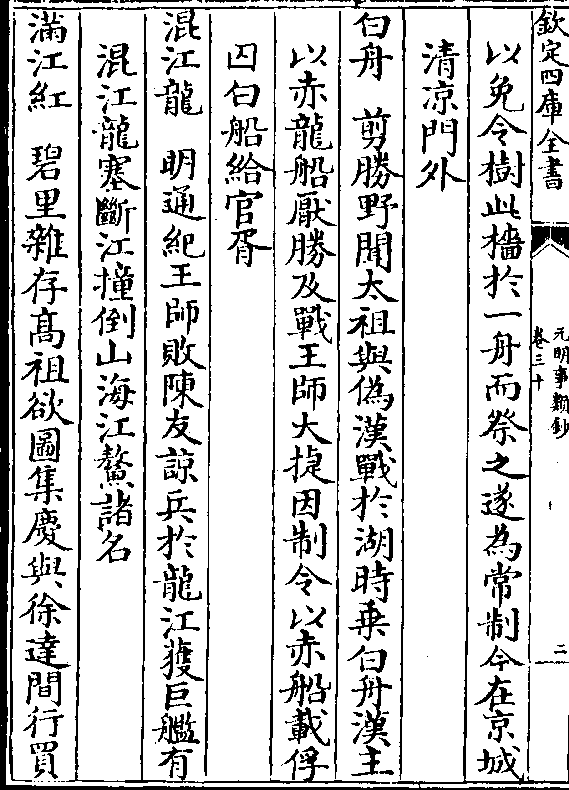 欽定四庫全書
元明事類鈔
卷三十
二
以免今樹此檣於一舟而祭之遂為常制今在京城
清凉門外
白舟　剪勝野聞太祖與偽漢戰於湖時乗白舟漢主
以赤龍船厭勝及戰王師大捷因制令以赤船載俘
囚白船給官胥
混江龍　明通紀王師敗陳友諒兵於龍江獲巨艦有
混江龍塞斷江撞倒山海江鰲諸名
滿江紅　碧里雜存髙祖欲圖集慶與徐達間行買